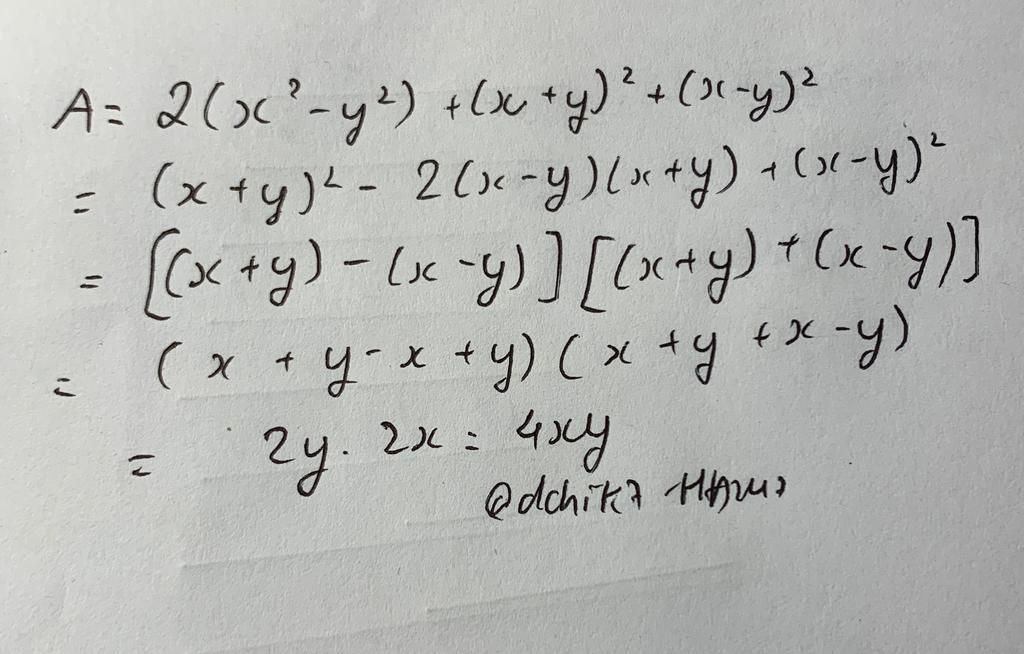 A= 2(x²-y²) +(x+y)²+(x-y)²
= (x+y)²- 2(x-y)(x+y) +(x-y)²
= [(x+y)-(x-y)][(x+y)+(x-y)]
= (x+y-x+y)(x+y+x-y)
= 2y. 2x = 4xy